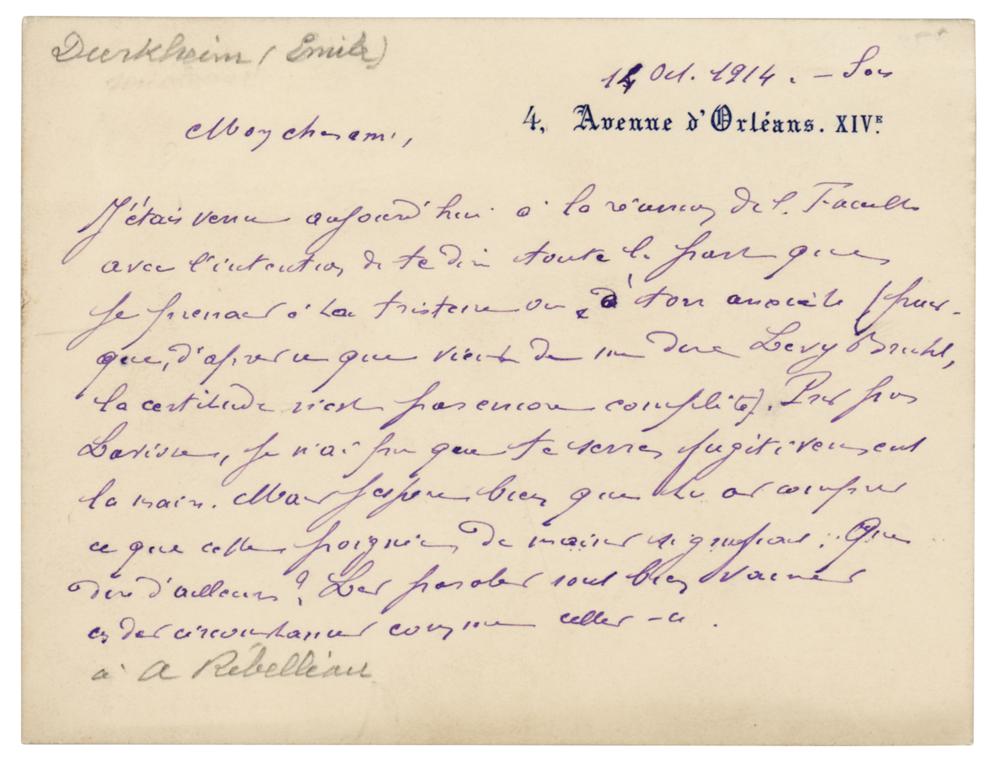 Durkheim (Emile)
14 Oct. 1914. - Soir
4, Avenue d'Orléans. XIVᴱ.
Mon cher ami,
J'étais venu aujourd'hui à la réunion de l. Faculté
avec l'intention de te dire toute la part que
je prenais à ta tristesse ou à ton anxiété (puis-
que, d'après ce que vient de me dire Levy Bruhl,
la certitude n'est pas encore complète). Pris par
Lavisse, je n'ai pu que te serrer fugitivement
la main. Mais j'espère bien que tu as compris
ce que cette poignée de mains signifiait. Que
dire d'ailleurs ? Les paroles sont bien vaines
en des circonstances comme celles-ci.
à A Rébelliau